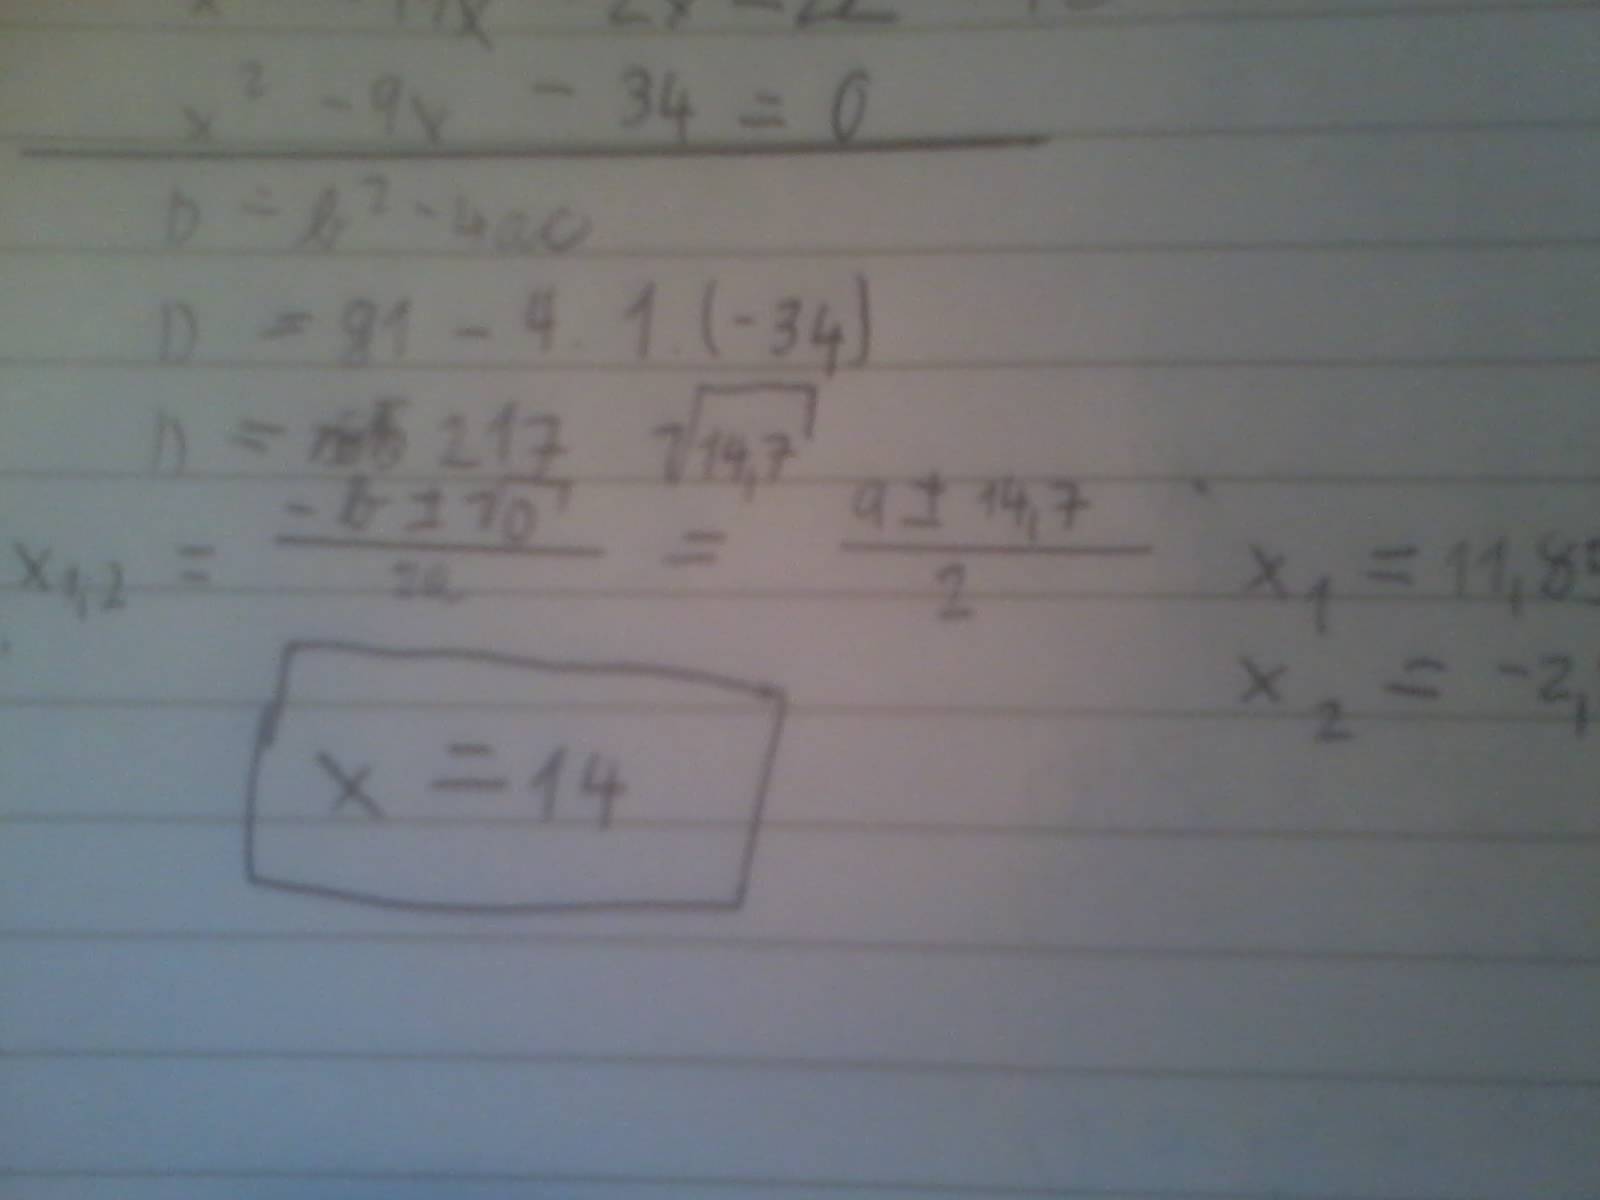 2x - 22
x² - 9x - 34 = 0
D = b² - 4ac
D = 81 - 4 . 1 . (-34)
D = 217 √14,7
x1,2 = -b ± √D / 2a = 9 ± 14,7 / 2 x1 = 11,8
x2 = -2,
x = 14